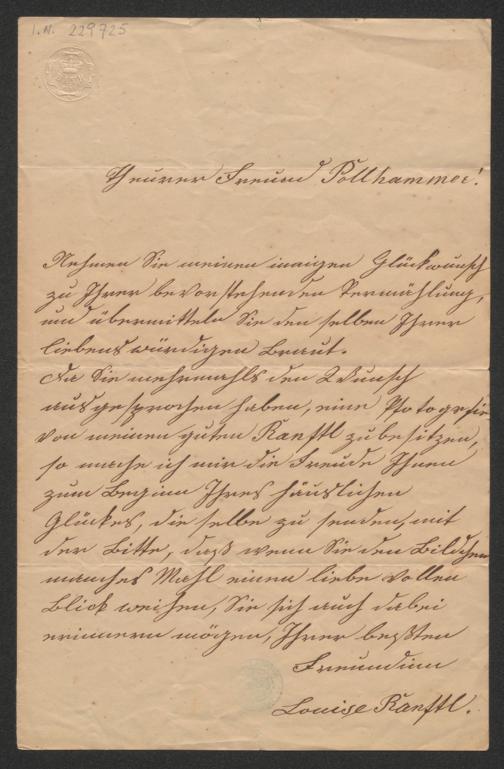 I.N. 229725
Theurer Freund Pollhammer!
Nehmen Sie meinen innigen Glückwunsch
zu Ihrer bevorstehenden Vermählung,
und übermitteln Sie den selben Ihrer
liebenswürdigen Braut.
Da Sie mehrmahls den Wunsch
ausgesprochen haben, eine Photografie
von meinen guten Ranftl zu besitzen,
so mache ich mir die Freude Ihnen
zum Beginn Ihres häuslichen
Glückes, die selbe zu senden, mit
der Bitte, daß wenn Sie den Bildchen
manches Mahl einen liebe vollen
Blick weihen, Sie sich auch dabei
erinnern mögen, Ihrer beßten
Freundinn
Louise Ranftl.